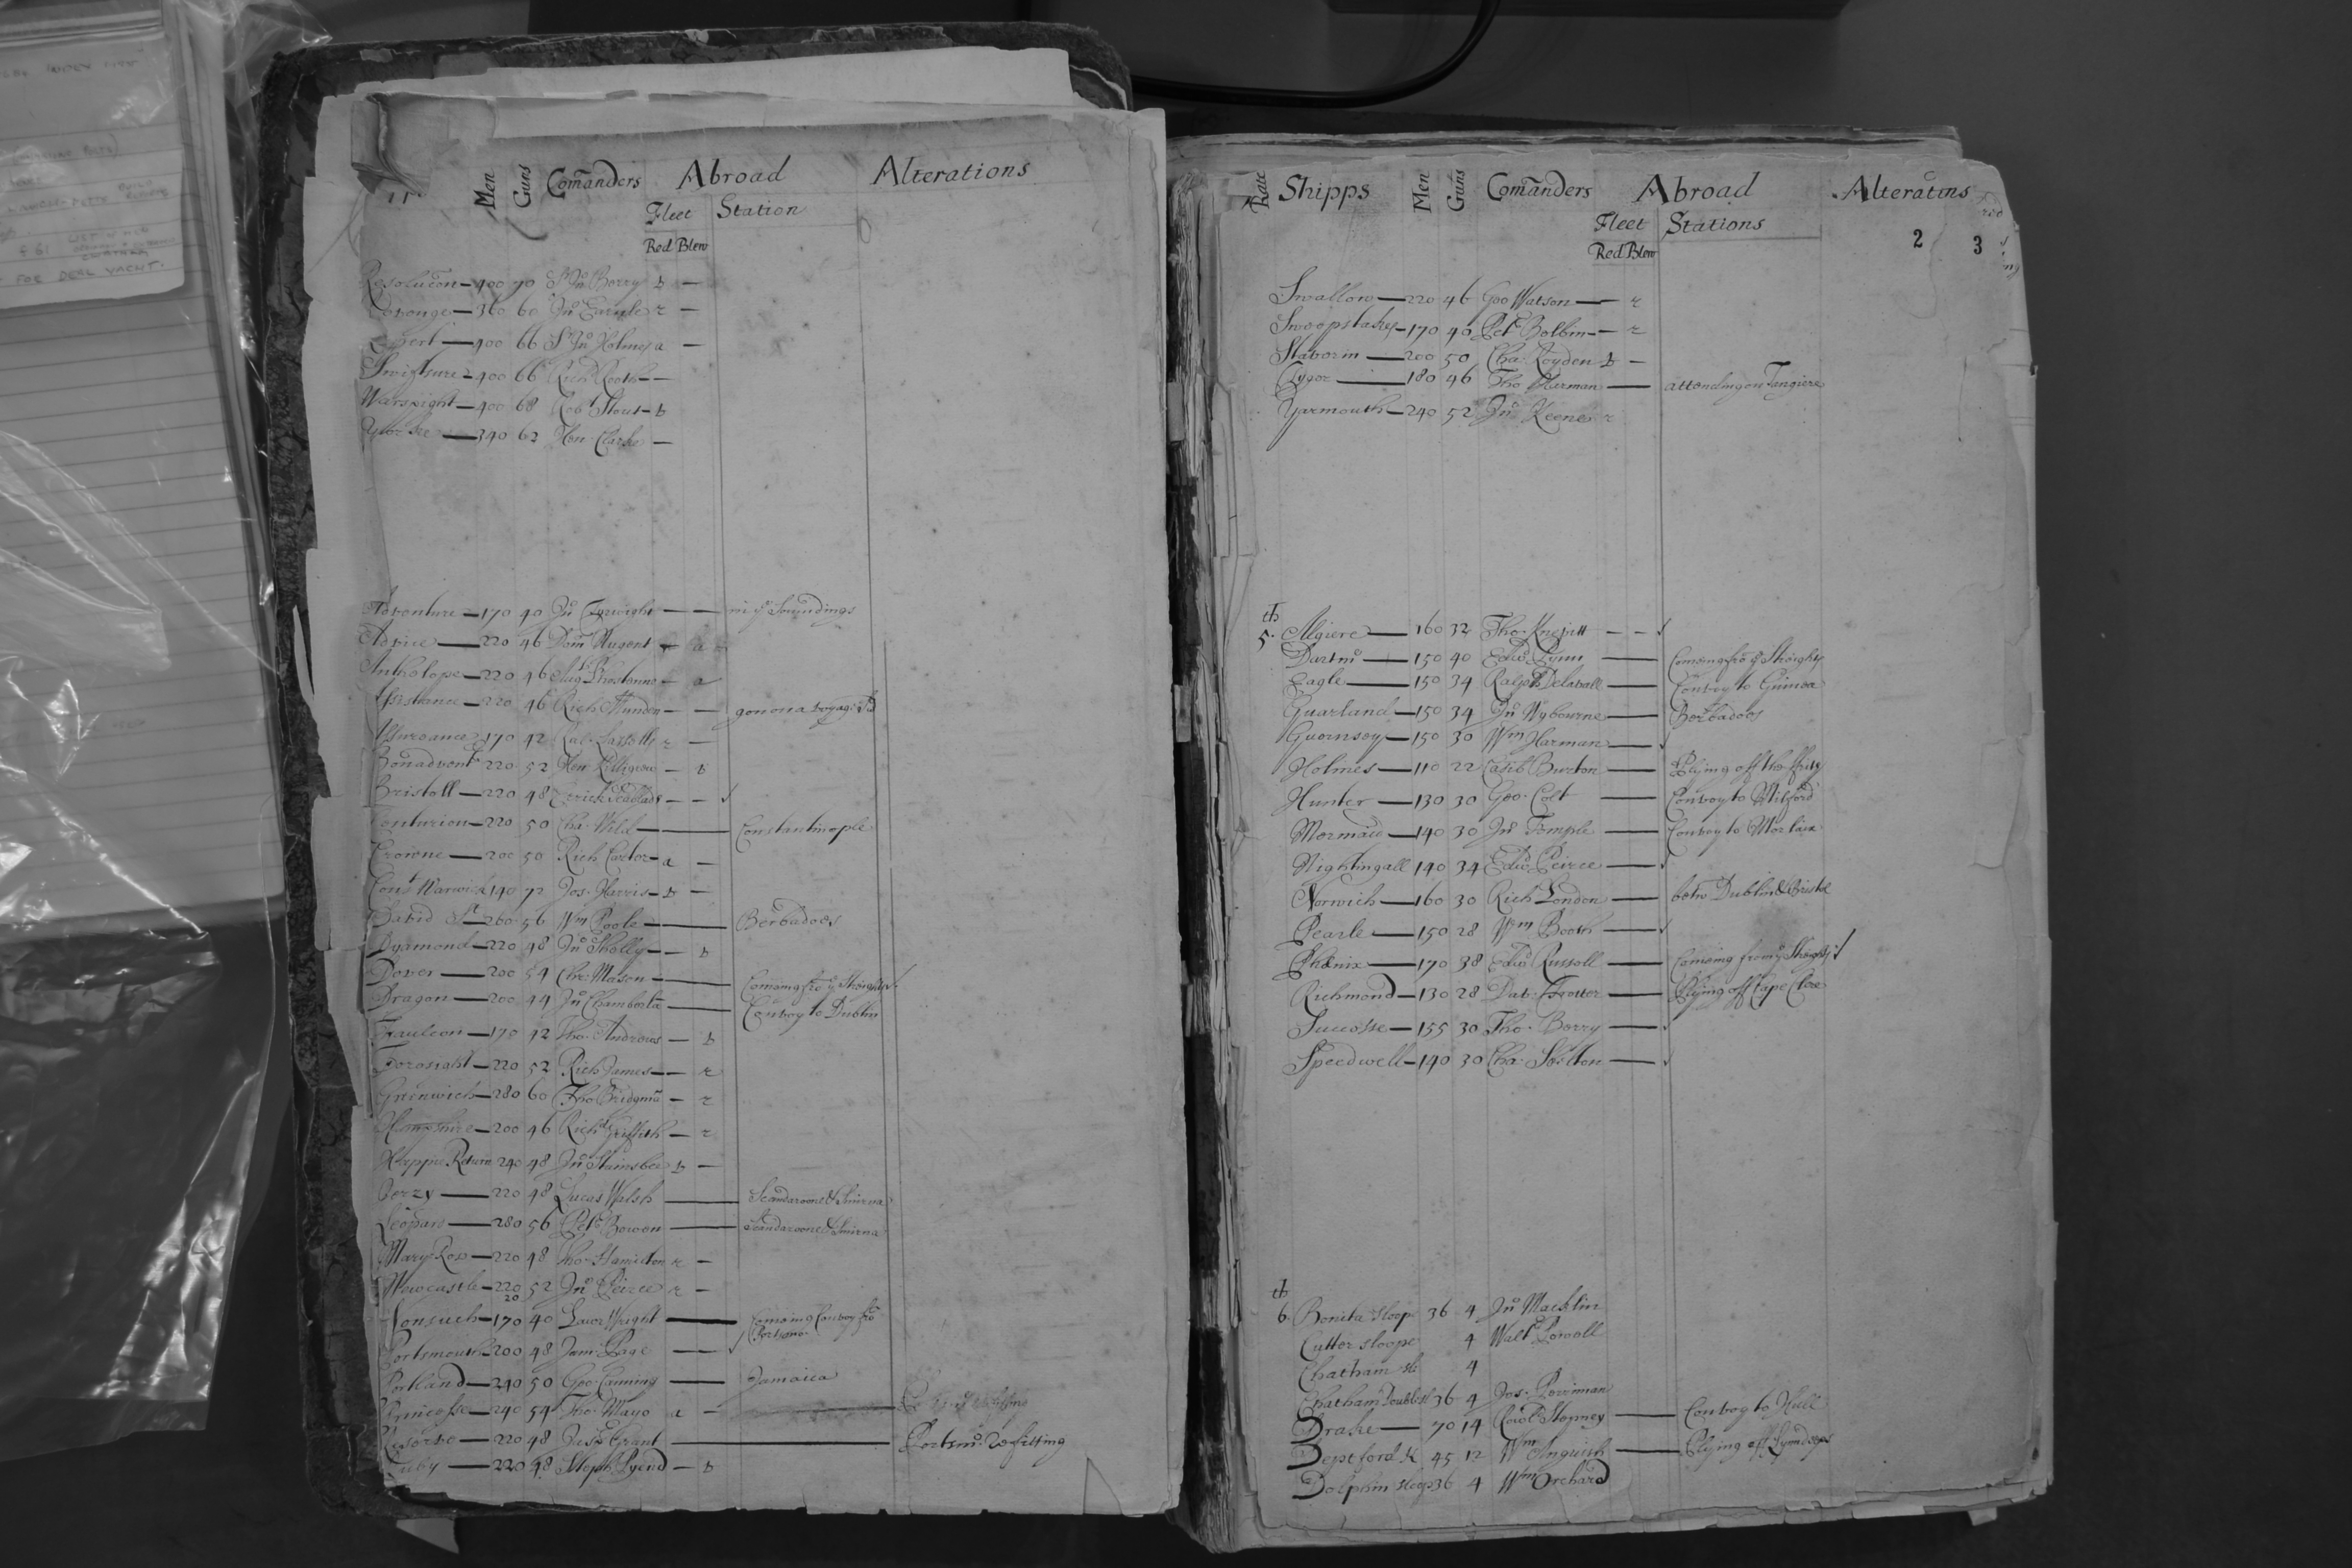 Men Guns Comanders Abroad Alterations
Fleet Station
Red Blew
Resolucon 400 70 Sr Jno Berry b
Revenge 360 60 Jno Earnle r
Rupert 400 66 Sr Jno Holmes a
Swiftsure 400 66 Rich Rooth
Warspight 400 68 Robt Stout b
Yorke 340 62 Hen Clarke
Adventure 170 40 Jno in ye Soundings
Advice 220 46 Dom Nugent a
Anthelope 220 46 a
Assistance 220 46 Rich Munden gon on a voyage
Assurance 170 42 r
Bonadventr 220 52 Hen Killigrew b
Bristoll 220 48
Centurion 220 50 Cha. Wild Constantinople
Crowne 200 50 Rich Carter a
Const Warwick 140 72 Jos. Harris b
David St 260 56 Wm Poole Berbadoes
Dyamond 220 48 Jno b
Dover 200 54 Chr. Mason Comeing fro ye Streights
Dragon 200 44 Jno Convoy to Dublin
Faulcon 170 42 Tho. Andrews b
Foresight 220 52 Rich James r
Greenwich 280 60 Tho Bridgmã r
Hampshire 200 46 Richd Griffith r
Happie Returne 240 48 Jno Stainsbee b
Jerzy 220 48 Lucas Walsh Scandaroone & Smirna
Leopard 280 56 Petr Bowen Scandaroone & Smirna
Mary Rose 220 48 Tho. Hamilton r
Newcastle 220 52 Jno Peirce r
20
Nonsuch 170 40 Lawr Wright Comeing Convoy fro
Portsmo
Portsmouth 200 48 Jam: Page
Portland 240 50 Geo: Canning Jamaica
Princesse 240 54 Tho. Mayo a
Reserve 220 48 Grant Portsmo Refitting
Ruby 220 48 Steph Pyend b
Rate Shipps Men Guns Comanders Abroad Alteratins
Fleet Stations
Red Blew 2 3
Swallow 220 46 Geo Watson r
Sweepstakes 170 40 Petr r
Stavorin 200 50 Cha. Royden b
Tyger 180 46 Tho Harman attending on Tangiere
Yarmouth 240 52 Jno Keene r
th
5. Algiere 160 32 Tho.
Dartmo 150 40 Edwd Pynn Comeing fro ye Streights
Eagle 150 34 Ralph Delavall Convoy to Guinea
Guarland 150 34 Jno Wybourne Berbadoes
Guernsey 150 30 Wm Harman
Holmes 110 22 Burton Plying off
Hunter 130 30 Geo. Colt Convoy to Milford
Mermaid 140 30 Jno Temple Convoy to Morlaix
Nightingall 140 34 Edwd Peirce
Norwich 160 30 Rich London betw Dublin & Bristol
Pearle 150 28 Wm Booth
Phœnix 170 38 Edwd Russell Comeing from ye Streights
Richmond 130 28 Dav. Trotter Plying off Cape Clere
Successe 155 30 Tho. Berry
Speedwell 140 30 Cha. Skelton
th
6. Bonita sloop 36 4 Jno Macklin
Cutter sloope 4 Waltr Powell
Chatham sl: 4
Chatham Double sl 36 4 Jos. Perriman
Drake 70 14 Rowld Stepney Convoy to Hull
Deptford K 45 12 Wm Anguish Plying off
Dolphin sloop 36 4 Wm Orchard